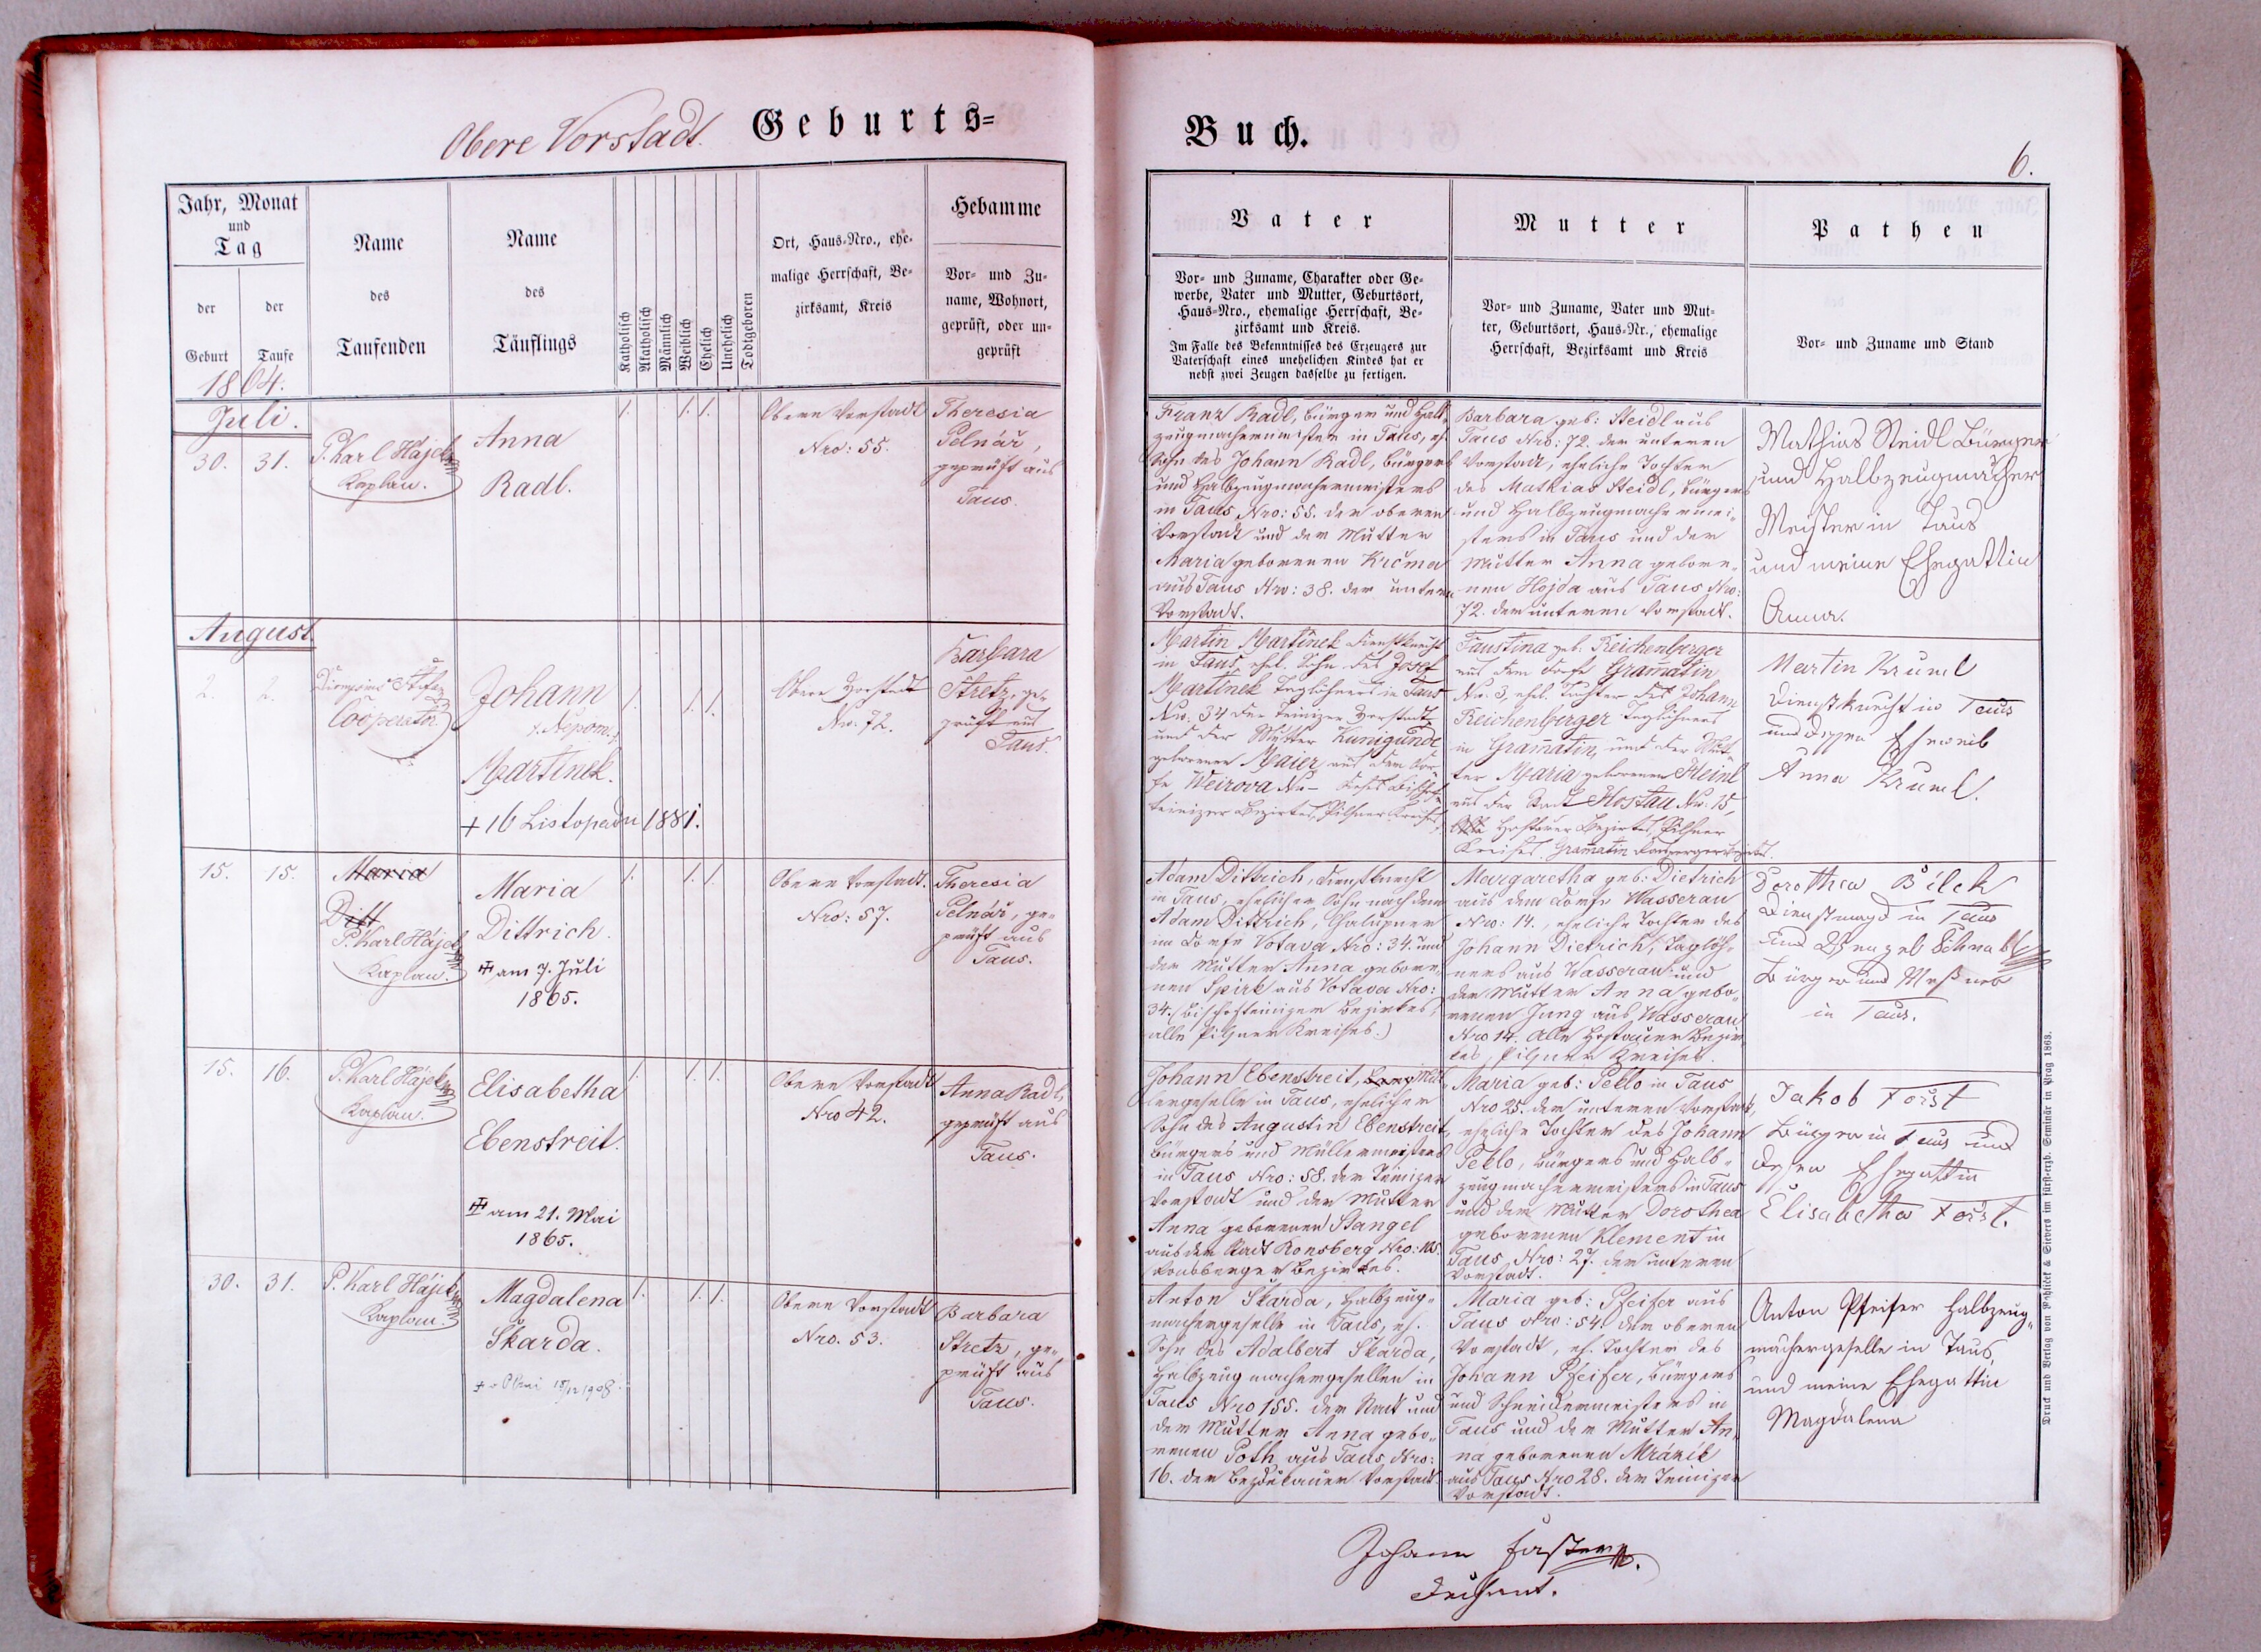 Obere Vorstadt. Geburts=
Jahr, Monat
und
Tag
der
Geburt
der
Taufe
Name
des
Taufenden
Name
des
Täuflings
Katholisch
Akatholisch
Männlich
Weiblich
Ehelich
Unehelich
Todtgeboren
Ort, Haus-Nro., ehe-
malige Herrschaft, Be-
zirksamt, Kreis
Hebamme
Vor- und Zu-
name, Wohnort,
geprüft, oder un-
geprüft
1864.
Juli.
30. 31.
P. Karl Hájek
Kaplan.
Anna
Radl.
1. 1. 1.
Obere Vorstadt
Nro: 55.
Theresia
Pelnář,
geprüft aus
Taus.
August.
2. 2.
Cooperator
Johann
Nepom.
Martinek.
+ 16 Listopadu 1881.
1. 1. 1.
Obere Vorstadt
Nro. 72.
Barbara
Stretz, ge-
prüft aus
Taus.
15. 15.
Maria
Ditt
P. Karl Hájek
Kaplan.
Maria
Dittrich.
am 7. Juli
1865.
1. 1. 1.
Obere Vorstadt.
Nro: 57.
Theresia
Pelnář, ge-
prüft aus
Taus.
15. 16.
P. Karl Hájek
Kaplan.
Elisabetha
Ebenstreit.
am 21. Mai
1865.
1. 1. 1.
Obere Vorstadt
Nro 42.
Anna Radl,
geprüft aus
Taus.
30. 31.
P. Karl Hájek
Kaplan.
Magdalena
Škarda.
18/12 1908
1. 1. 1.
Obere Vorstadt
Nro. 53.
Barbara
Stretz, ge-
prüft aus
Taus.
Buch.
6.
Vater
Vor- und Zuname, Charakter oder Ge-
werbe, Vater und Mutter, Geburtsort,
Haus-Nro., ehemalige Herrschaft, Be-
zirksamt und Kreis.
Im Falle des Bekenntnisses des Erzeugers zur
Vaterschaft eines unehelichen Kindes hat er
nebst zwei Zeugen dasselbe zu fertigen.
Mutter
Vor- und Zuname, Vater und Mut-
ter, Geburtsort, Haus-Nr., ehemalige
Herrschaft, Bezirksamt und Kreis
Pathen
Vor- und Zuname und Stand
Franz Radl, Bürger und Halb-
zeugmachermeister in Taus, eh.
Sohn des Johann Radl, Bürgers
und Halbzeugmachermeisters
in Taus Nro: 55. der oberen
Vorstadt und der Mutter
Maria geborenen Krčma
aus Taus Nro: 38. der untern
Vorstadt.
Barbara geb: Steidl aus
Taus Nro: 72. der unteren
Vorstadt, eheliche Tochter
des Mathias Steidl, Bürgers
und Halbzeugmachermei-
sters in Taus und der
Mutter Anna gebore-
nen Hojda aus Taus Nro:
72. der unteren Vorstadt.
Mathias Steidl Bürger
und Halbzeugmacher
Meister in Taus
und meine Ehegattin
Anna.
Martin Martinek Dienstknecht
in Taus, ehel. Sohn des Josef
Martinek Taglöhners in Taus
Nro: 34 der Teinizer Vorstadt
und der Mutter Kunigunde
geborenen Maier aus dem Dor-
fe Weirova
teinizer Bezirkes, Pilsner Kreises.
Faustina geb. Reichenberger
aus dem Dorfe Gramatin
Nro. 3, ehel. Tochter des Johann
Reichenberger Taglöhners
in Gramatin, und der Mut-
ter Maria geborenen Heinl
aus der Stadt Hostau Nro. 15,
Hostauer Bezirkes, Pilsner
Kreises. Gramatin
Martin Kruml
Dienstknecht in Taus
und dessen Eheweib
Anna Kruml.
Adam Dittrich, Dienstknecht
in Taus, ehelicher Sohn nach dem
Adam Dittrich, Chalupner
im Dorfe Votava Nro: 34. und
der Mutter Anna gebore-
nen Spirk aus Votava Nro:
34. (Bischofteinizer Bezirkes,
alle Pilsner Kreises.)
Margaretha geb: Dietrich
aus dem Dorfe Wasserau
Nro: 14., eheliche Tochter des
Johann Dietrich, Taglöh-
ners aus Wasserau und
der Mutter Anna gebo-
renen Jung aus Wasserau
Nro 14. Alle Hostauer Bezir-
kes, Pilsner Kreises.
Dorothea Bílek
Dienstmagd in Taus
und Wenzel Schnabl
Bürger und Meßner
in Taus.
Johann Ebenstreit, Mül-
lergeselle in Taus, ehelicher
Sohn des Augustin Ebenstreit,
Bürgers und Müllermeisters
in Taus Nro: 58. der Teinizer
Vorstadt und der Mutter
Anna geborenen Stangel
aus der Stadt Ronsberg Nro: 105.
Ronsberger Bezirkes.
Maria geb: Peklo in Taus
Nro 25. der unteren Vorstadt,
eheliche Tochter des Johann
Peklo, Bürgers und Halb-
zeugmachermeisters in Taus
und der Mutter Dorothea
geborenen Klement in
Taus Nro: 27. der unteren
Vorstadt.
Jakob Forst
Bürger in Taus und
dessen Ehegattin
Elisabetha Forst.
Anton Škarda, Halbzeug-
machergeselle in Taus, eh.
Sohn des Adalbert Škarda,
Halbzeugmachergesellen in
Taus Nro 155. der Stadt und
der Mutter Anna gebo-
renen Poth aus Taus Nro:
16. der Bezdiekauer Vorstadt.
Maria geb: Pfeifer aus
Taus Nro: 54. der oberen
Vorstadt, eh. Tochter des
Johann Pfeifer, Bürgers
und Schneidermeisters in
Taus und der Mutter An-
na geborenen Mrázík
aus Taus Nro 28. der Teinizer
Vorstadt.
Anton Pfeifer Halbzeug-
machergeselle in Taus,
und meine Ehegattin
Magdalena
Johann Faster
Dechant.